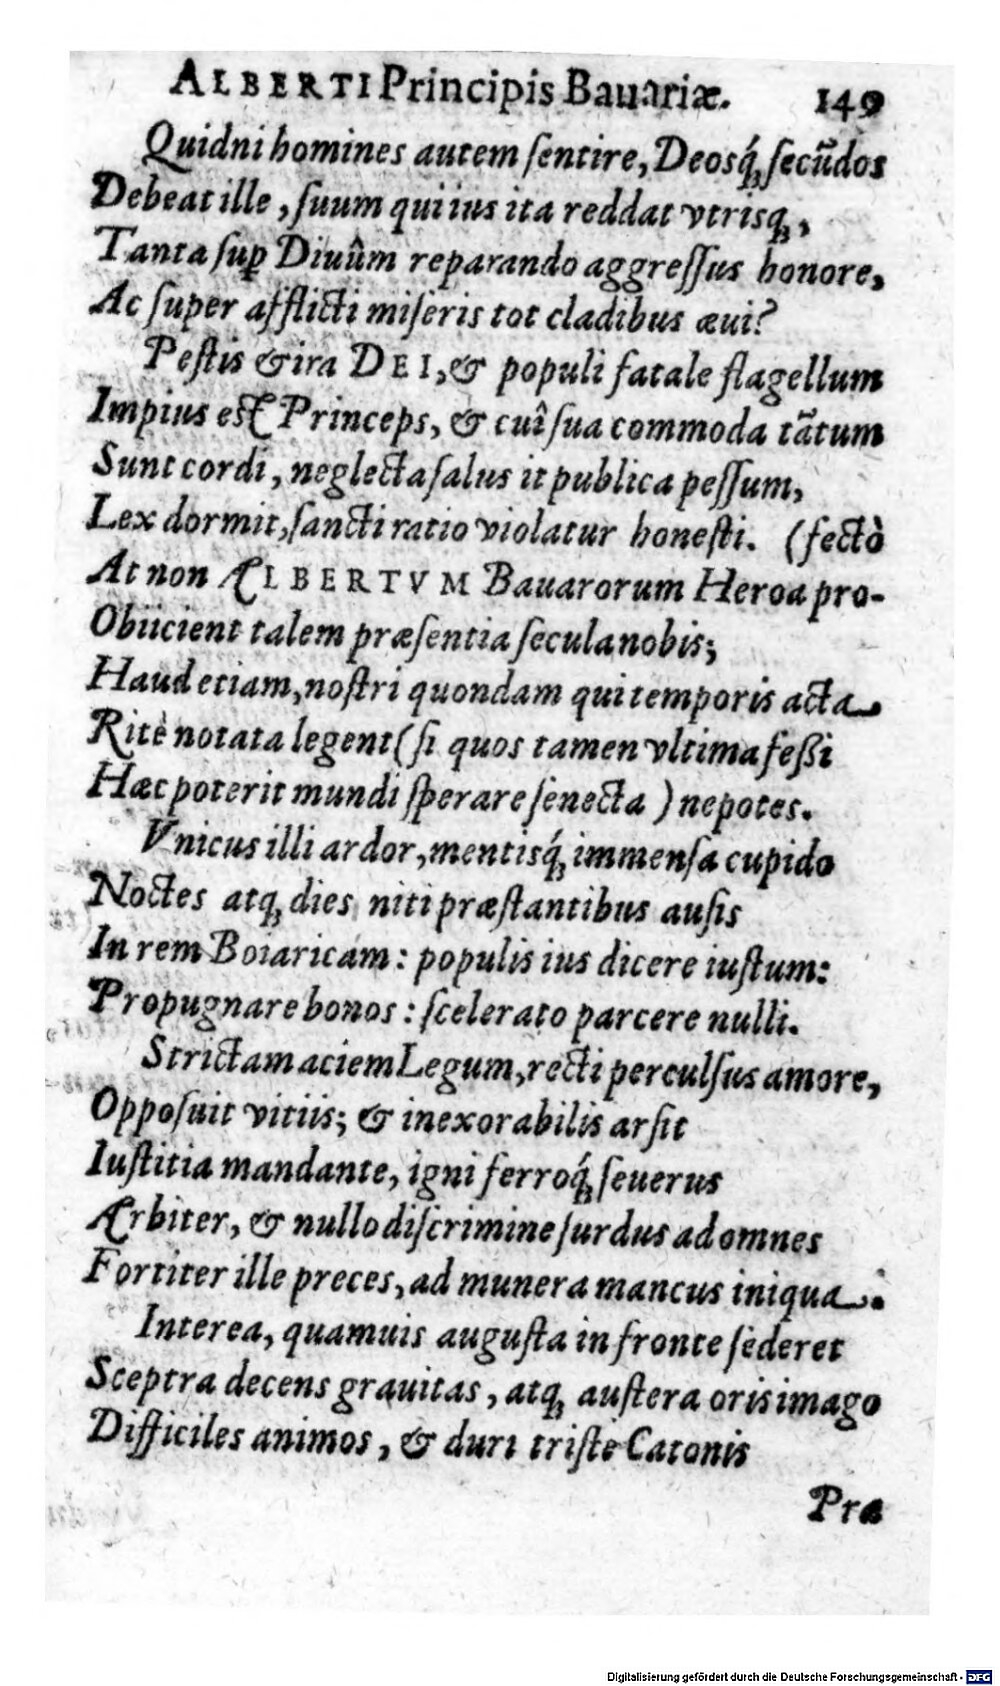 ALBERTI Principis Bauariæ. 149
Quidni homines autem ſentire, Deosq́; ſecũdos
Debeat ille, ſuum qui ius ita reddat vtrisq;,
Tanta ſuꝑ Diuûm reparando aggreſſus honore,
Ac ſuper afflicti miſeris tot cladibus æui?
Peſtis & ira DEI, & populi fatale flagellum
Impius eſt Princeps, & cuî ſua commoda tãtum
Sunt cordi, neglecta ſalus it publica peſſum,
Lex dormit, ſancti ratio violatur honeſti. (fectò
At non ALBERTVM Bauarorum Heroa pro-
Obiicient talem præſentia ſecula nobis;
Haud etiam, noſtri quondam qui temporis acta
Ritè notata legent (ſi quos tamen vltima feßi
Hæc poterit mundi ſperare ſenecta) nepotes.
Vnicus illi ardor, mentisq́; immenſa cupido
Noctes atq; dies niti præſtantibus auſis
In rem Boiaricam: populis ius dicere iuſtum:
Propugnare bonos: ſcelerato parcere nulli.
Strictam aciem Legum, recti perculſus amore,
Oppoſuit vitiis; & inexorabilis arſit
Iuſtitia mandante, igni ferroq́; ſeuerus
Arbiter, & nullo diſcrimine ſurdus ad omnes
Fortiter ille preces, ad munera mancus iniqua.
Interea, quamuis auguſta in fronte ſederet
Sceptra decens grauitas, atq; auſtera oris imago
Difficiles animos, & duri triſte Catonis
Præ
Digitalisierung gefördert durch die Deutsche Forschungsgemeinschaft - DFG